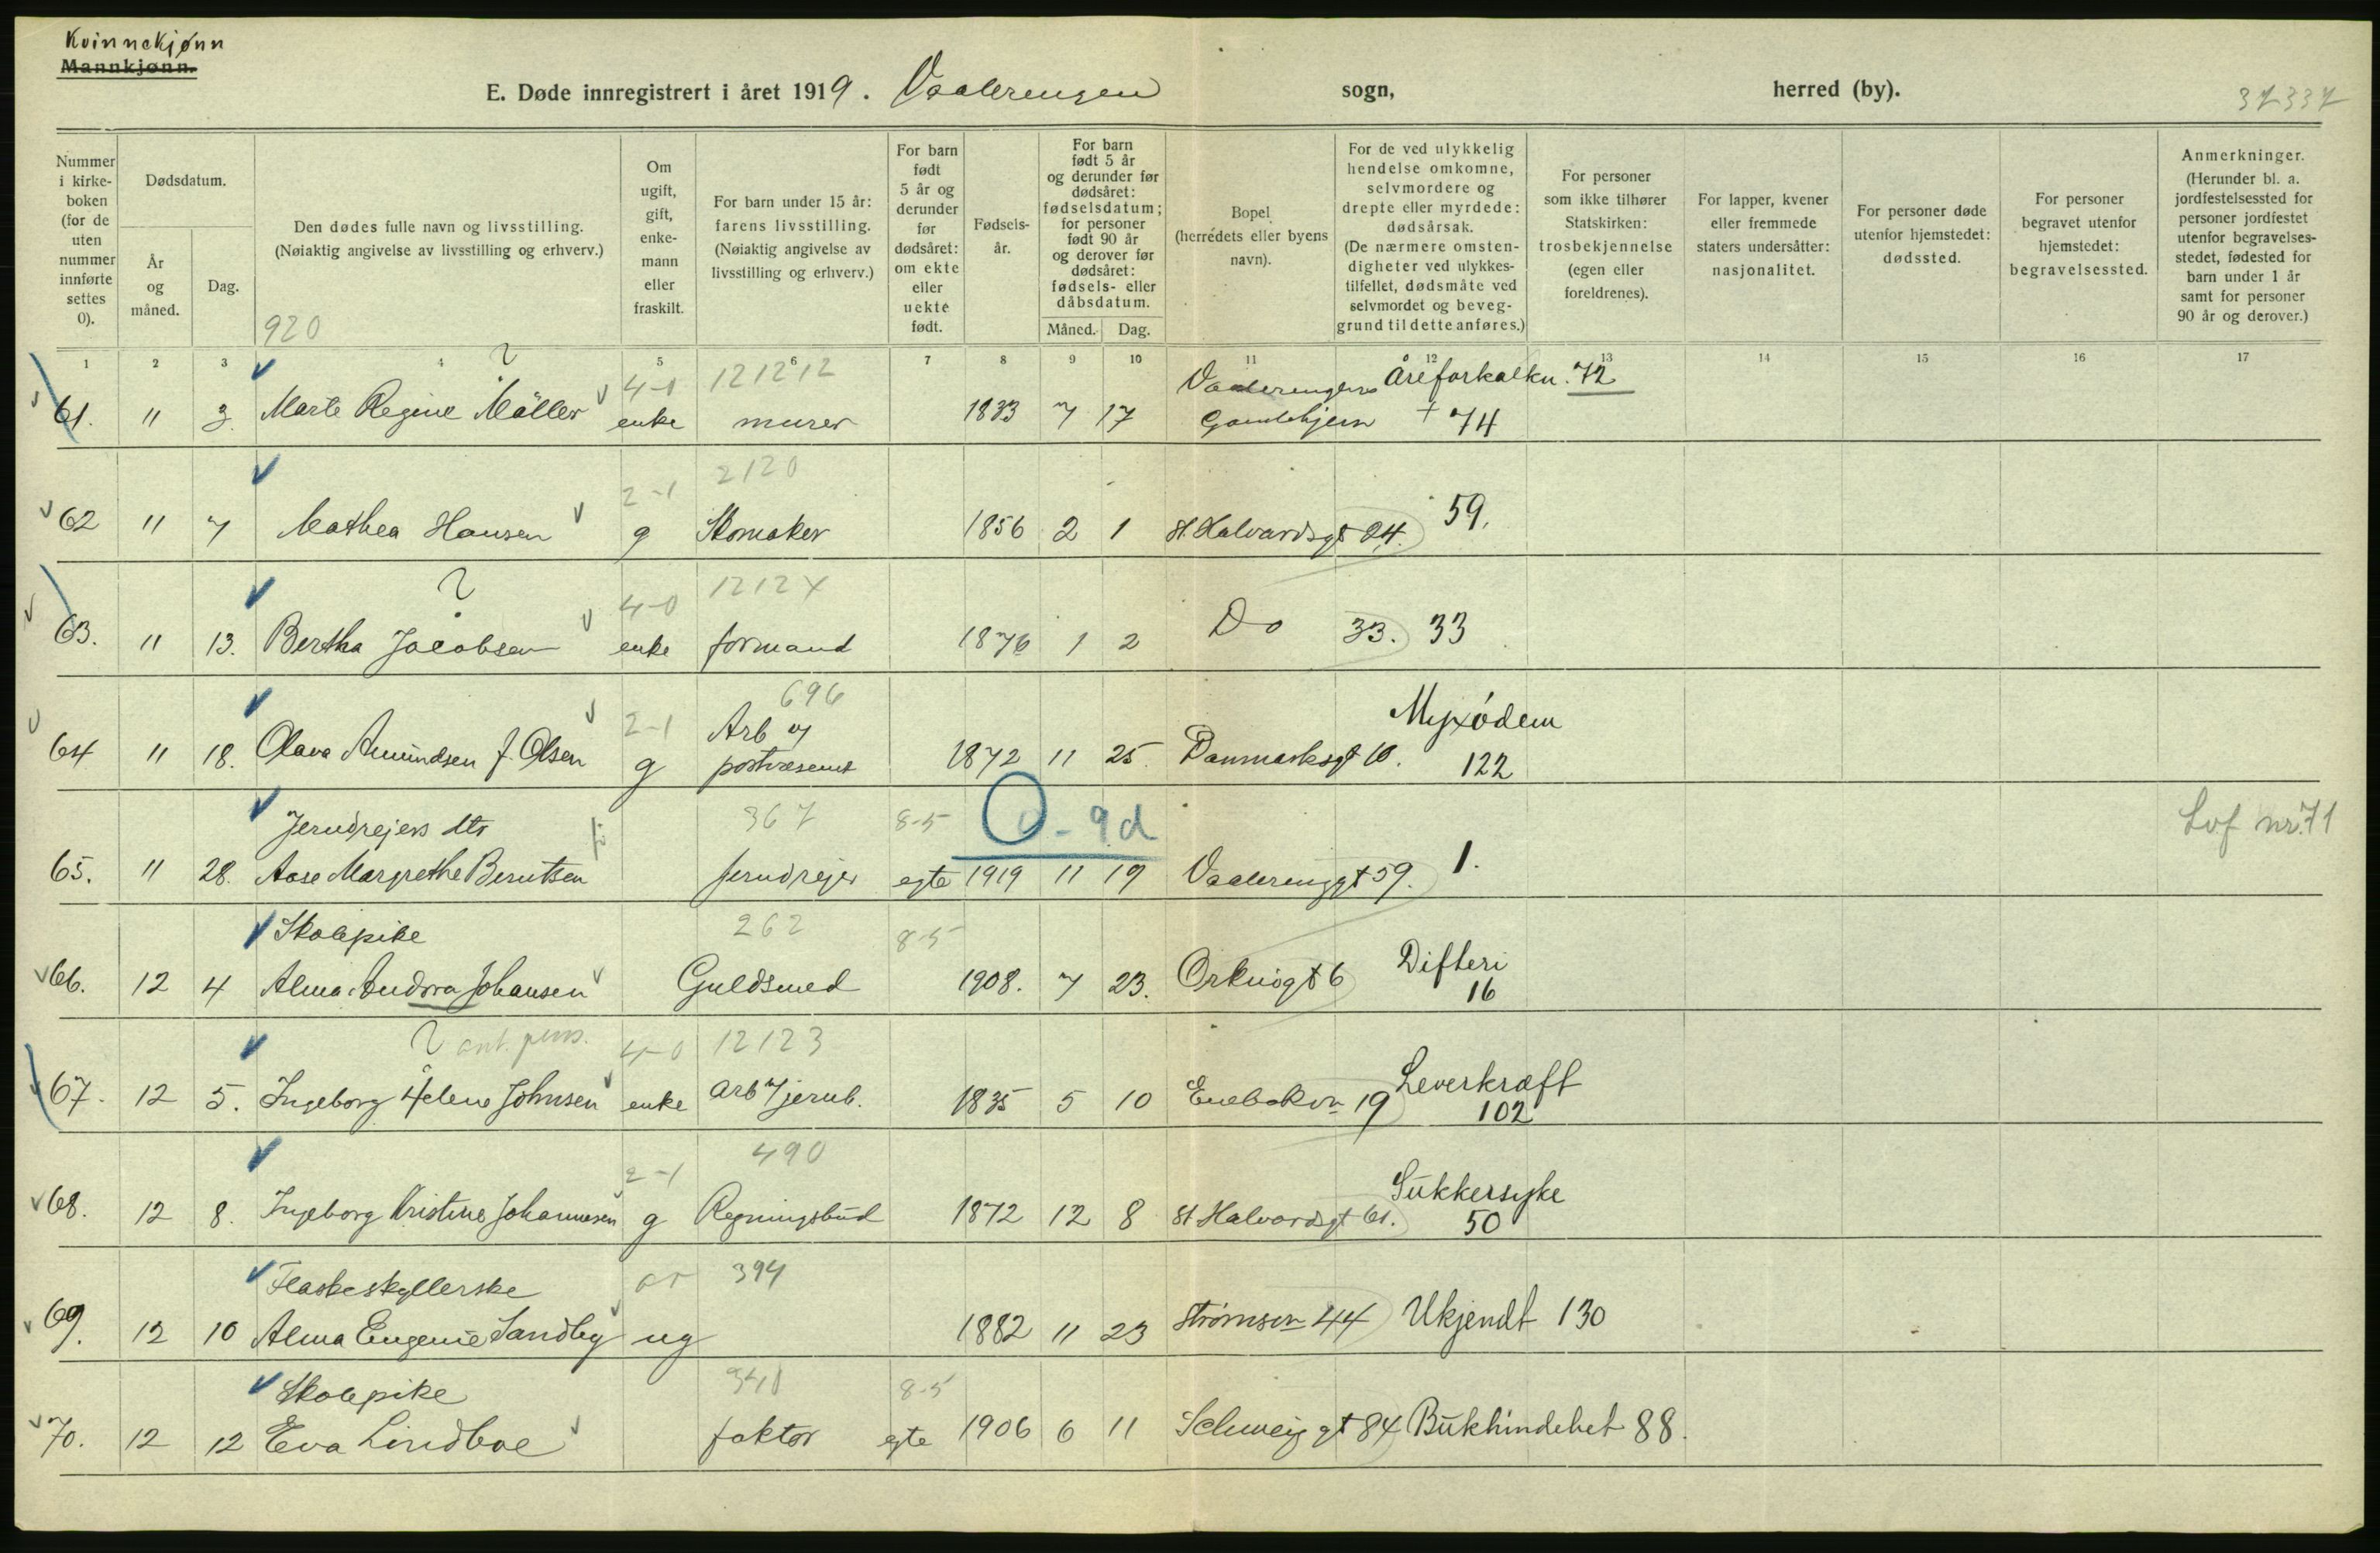 Kvinnekjønn
Mannkjønn.
E. Døde innregistrert i året 1919. Vaalerengen sogn, herred (by).
37337
Nummer i kirkeboken (for de uten nummer innførte settes 0).
Dødsdatum.
År og måned.
Dag.
Den dødes fulle navn og livsstilling.
(Nøiaktig angivelse av livsstilling og erhverv.)
920
Om ugift, gift, enkemann eller fraskilt.
For barn under 15 år: farens livsstilling. (Nøiaktig angivelse av livsstilling og erhverv.)
For barn født 5 år og derunder før dødsåret: om ekte eller uekte født.
Fødselsår.
For barn født 5 år og derunder før dødsåret: fødselsdatum; for personer født 90 år og derover før dødsåret: fødsels- eller dåbsdatum.
Måned. Dag.
Bopel (herredets eller byens navn).
For de ved ulykkelig hendelse omkomne, selvmordere og drepte eller myrdede: dødsårsak. (De nærmere omstendigheter ved ulykkestilfellet, dødsmåte ved selvmordet og beveggrund til dette anføres.)
For personer som ikke tilhører Statskirken: trosbekjennelse (egen eller foreldrenes).
For lapper, kvener eller fremmede staters undersåtter: nasjonalitet.
For personer døde utenfor hjemstedet: dødssted.
For personer begravet utenfor hjemstedet: begravelsessted.
Anmerkninger. (Herunder bl. a. jordfestelsessted for personer jordfestet utenfor begravelsesstedet, fødested for barn under 1 år samt for personer 90 år og derover.)
1 2 3 4 5 6 7 8 9 10 11 12 13 14 15 16 17
4-0 121212 Vaalerengens Åreforkalkn. 72
61. 11 3. Marte Regine Møller enke murer 1833 7 17 Gamlehjem + 74
2-1 2120
62 11 7 Mathea Hansen g Skomaker 1856 2 1 St. Halvardsgt 24. 59.
4-0 1212X
63. 11 13. Bertha Jacobsen enke formand 1876 1 2 Do 33. 33
2-1 696 Arb v Myxödem
64 11 18. Olava Amundsen f. Olsen g postvæsenet 1872 11 25. Danmarksgt 10. 122
Jerndrejers dtr 367 8-5 0 - 9d Lvf nr. 71
65. 11 28. Aase Margrethe Berntsen Jerndrejer egte 1919 11 19 Vaalerenggt 59. 1.
Skolepike 262 8-5 Difteri
66. 12 4 Alma Andora Johansen Guldsmed 1908. 7 23. Orknøgt 6 16
ant. pens. 4-0 12123 Leverkræft
67. 12 5. Ingeborg Helene Johnsen enke Arb v jernb. 1835 5 10 Enebakvn 19 102
2-1 490 Sukkersyke
68. 12 8. Ingeborg Kristine Johannesen g Regningsbud 1872 12 8 St Halvardsgt 61. 50
Flaskeskyllerske 394
69. 12 10 Alma Eugenie Sandby ug 1882 11 23 Strømsvn 44 Ukjendt 130
Skolepike 340 8-5
70. 12 12 Eva Lindboe faktor egte 1906 6 11 Schweigsgt 84 Bukhindebet 88.